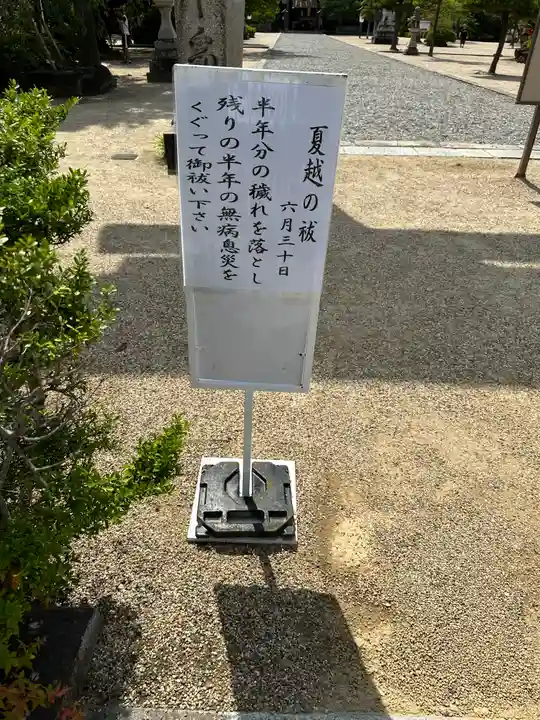 夏越の祓
六月三十日
半年分の穢れを落とし
残りの半年の無病息災を
くぐって御祓い下さい